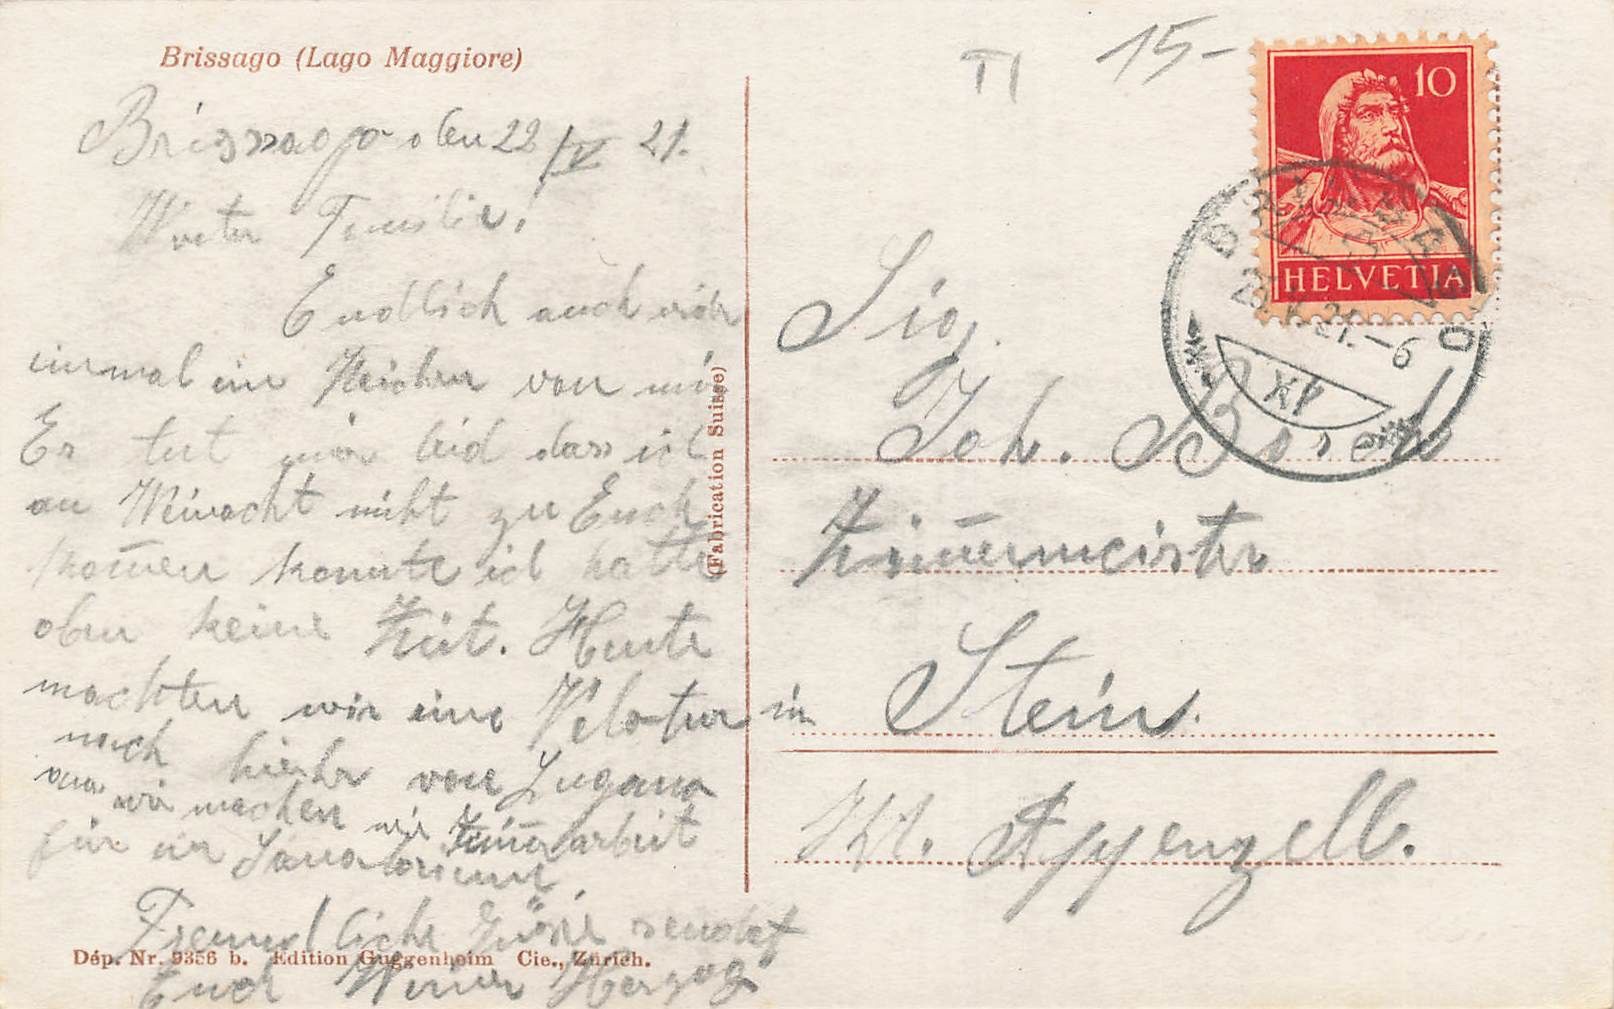 Brissago (Lago Maggiore)
Brissago den 22/V 21.
Werter Familie!
Endlich auch wider
einmal ein Zeichen von mir
Es tut mir leid dass ich
an Weinacht nicht zu Euch
kom̅en konnte ich hatte
oben keine Zeit. Heute
machten wir eine Velotur
nach hierhr von Lugano
wir machen wir Zim̅erarbeit
für ein Sanatorium.
Freundliche Grüsse sendet
Euch Werner Herzog
Dép. Nr. 9356 b. Edition Guggenheim Cie., Zürich.
(Fabrication Suisse)
TI 15-
10
HELVETIA
BRISSAGO
21.-6
XI
Sig.
Joh. Bösch
Zim̅ermeister
in Stein
Kt. Appenzell.